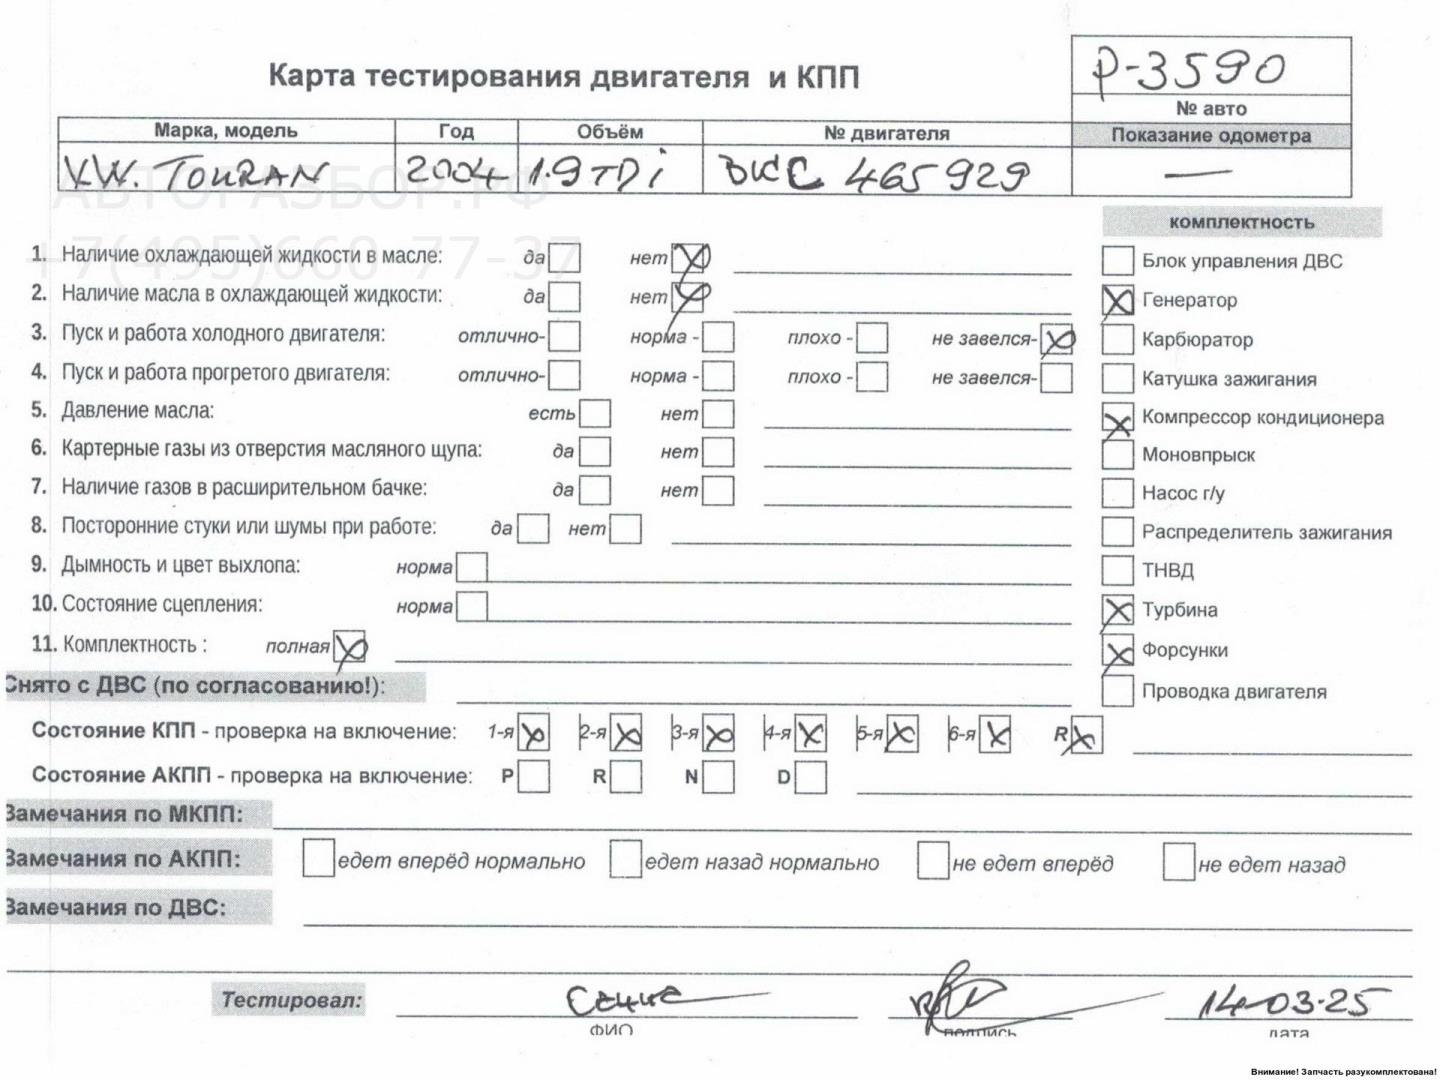 Р-3590
Карта тестирования двигателя и КПП
№ авто
Марка, модель Год Объём № двигателя Показание одометра
VW. TOURAN 2004 1.9 TDi BKC 465929 —
АВТОРАЗБОР.РФ
+7(495)660-77-37
комплектность
1. Наличие охлаждающей жидкости в масле: да нет Блок управления ДВС
2. Наличие масла в охлаждающей жидкости: да нет Генератор
3. Пуск и работа холодного двигателя: отлично- норма - плохо - не завелся- Карбюратор
4. Пуск и работа прогретого двигателя: отлично- норма - плохо - не завелся- Катушка зажигания
5. Давление масла: есть нет Компрессор кондиционера
6. Картерные газы из отверстия масляного щупа: да нет Моновпрыск
7. Наличие газов в расширительном бачке: да нет Насос г/у
8. Посторонние стуки или шумы при работе: да нет Распределитель зажигания
9. Дымность и цвет выхлопа: норма ТНВД
10. Состояние сцепления: норма Турбина
11. Комплектность : полная Форсунки
Снято с ДВС (по согласованию!): Проводка двигателя
Состояние КПП - проверка на включение: 1-я 2-я 3-я 4-я 5-я 6-я R
Состояние АКПП - проверка на включение: P R N D
Замечания по МКПП:
Замечания по АКПП: едет вперёд нормально едет назад нормально не едет вперёд не едет назад
Замечания по ДВС:
Тестировал: 14-03-25
ФИО подпись дата
Внимание! Запчасть разукомплектована!